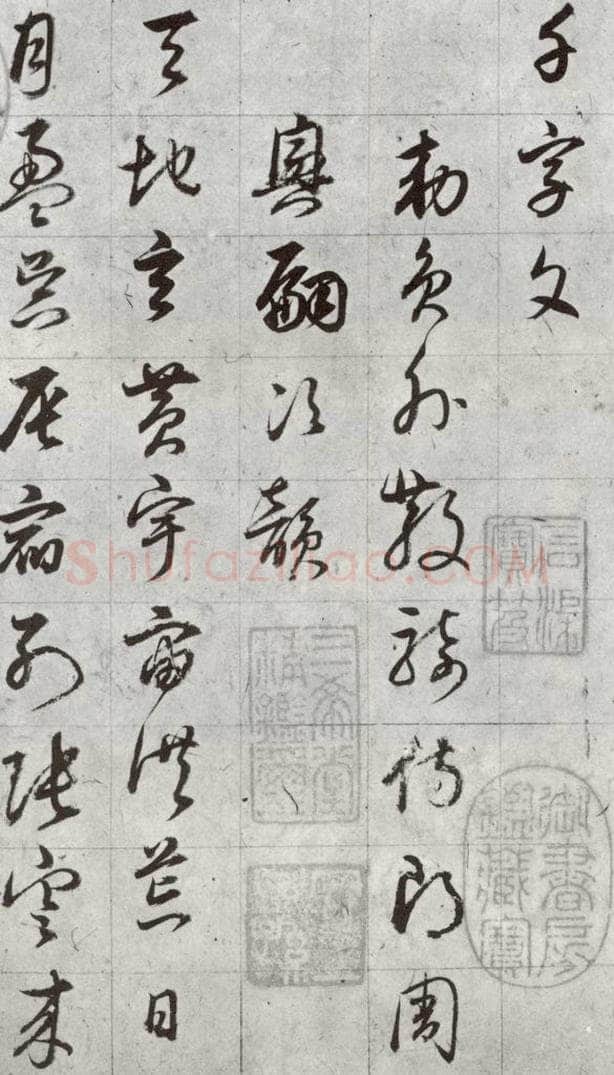 千字文
勑貟外散騎侍郎周
興嗣次韻
天地玄黃宇宙洪荒日
月盈昃辰宿列張寒來
Shufaziliao.COM
三希堂精鑑璽
御書房鑑藏寶